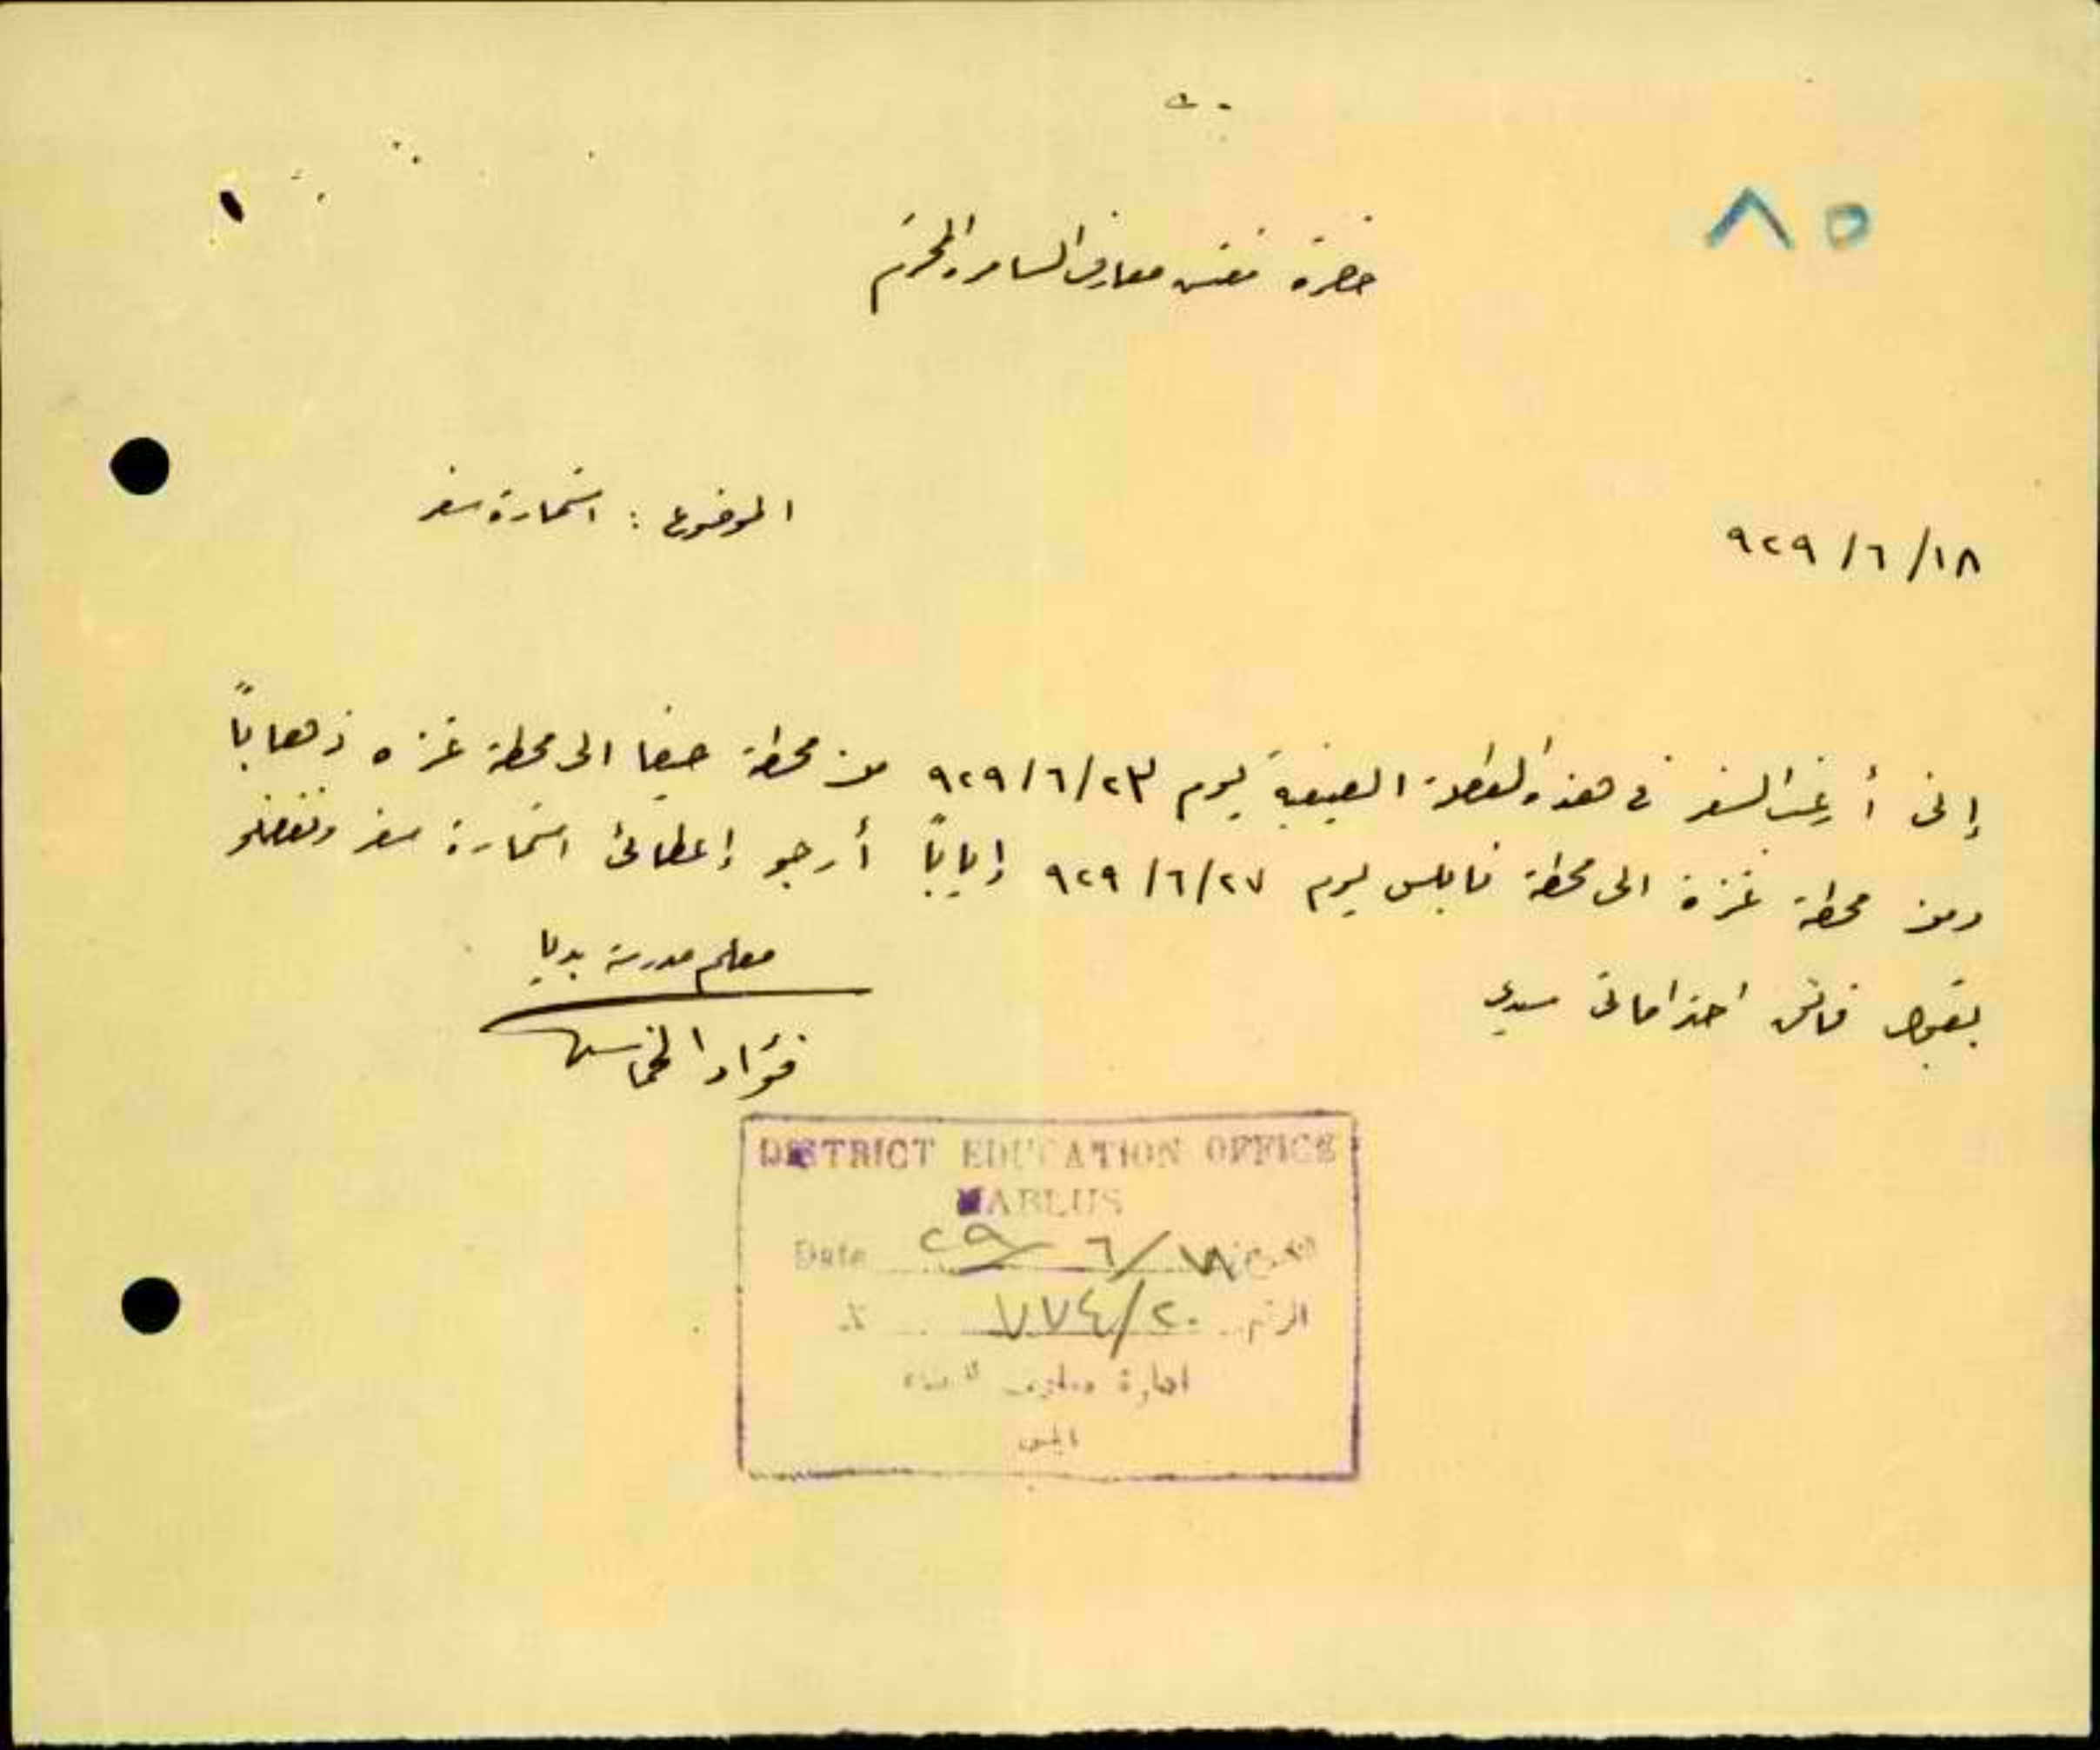 ٨٥
حضرة مفتش معارف السامرة المحترم
١٨/٦/٩٢٩
الموضوع : استمارة سفر
إني أرغب السفر في هذه العطلة الصيفية يوم ٢٣/٦/٩٢٩ من محطة حيفا الى محطة غزه ذهاباً
ومن محطة غزة الى محطة نابلس يوم ٢٧/٦/٩٢٩ إياباً أرجو إعطائي استمارة سفر وتفضلوا
بقبول فائق احتراماتي سيدي
معلم مدرسة بديا
فؤاد الخماش
DISTRICT EDUCATION OFFICE
NABLUS
Date ١٨/٦/٢٩ التاريخ
الرقم ٧٧٤/٢٠
ادارة معارف
نابلس